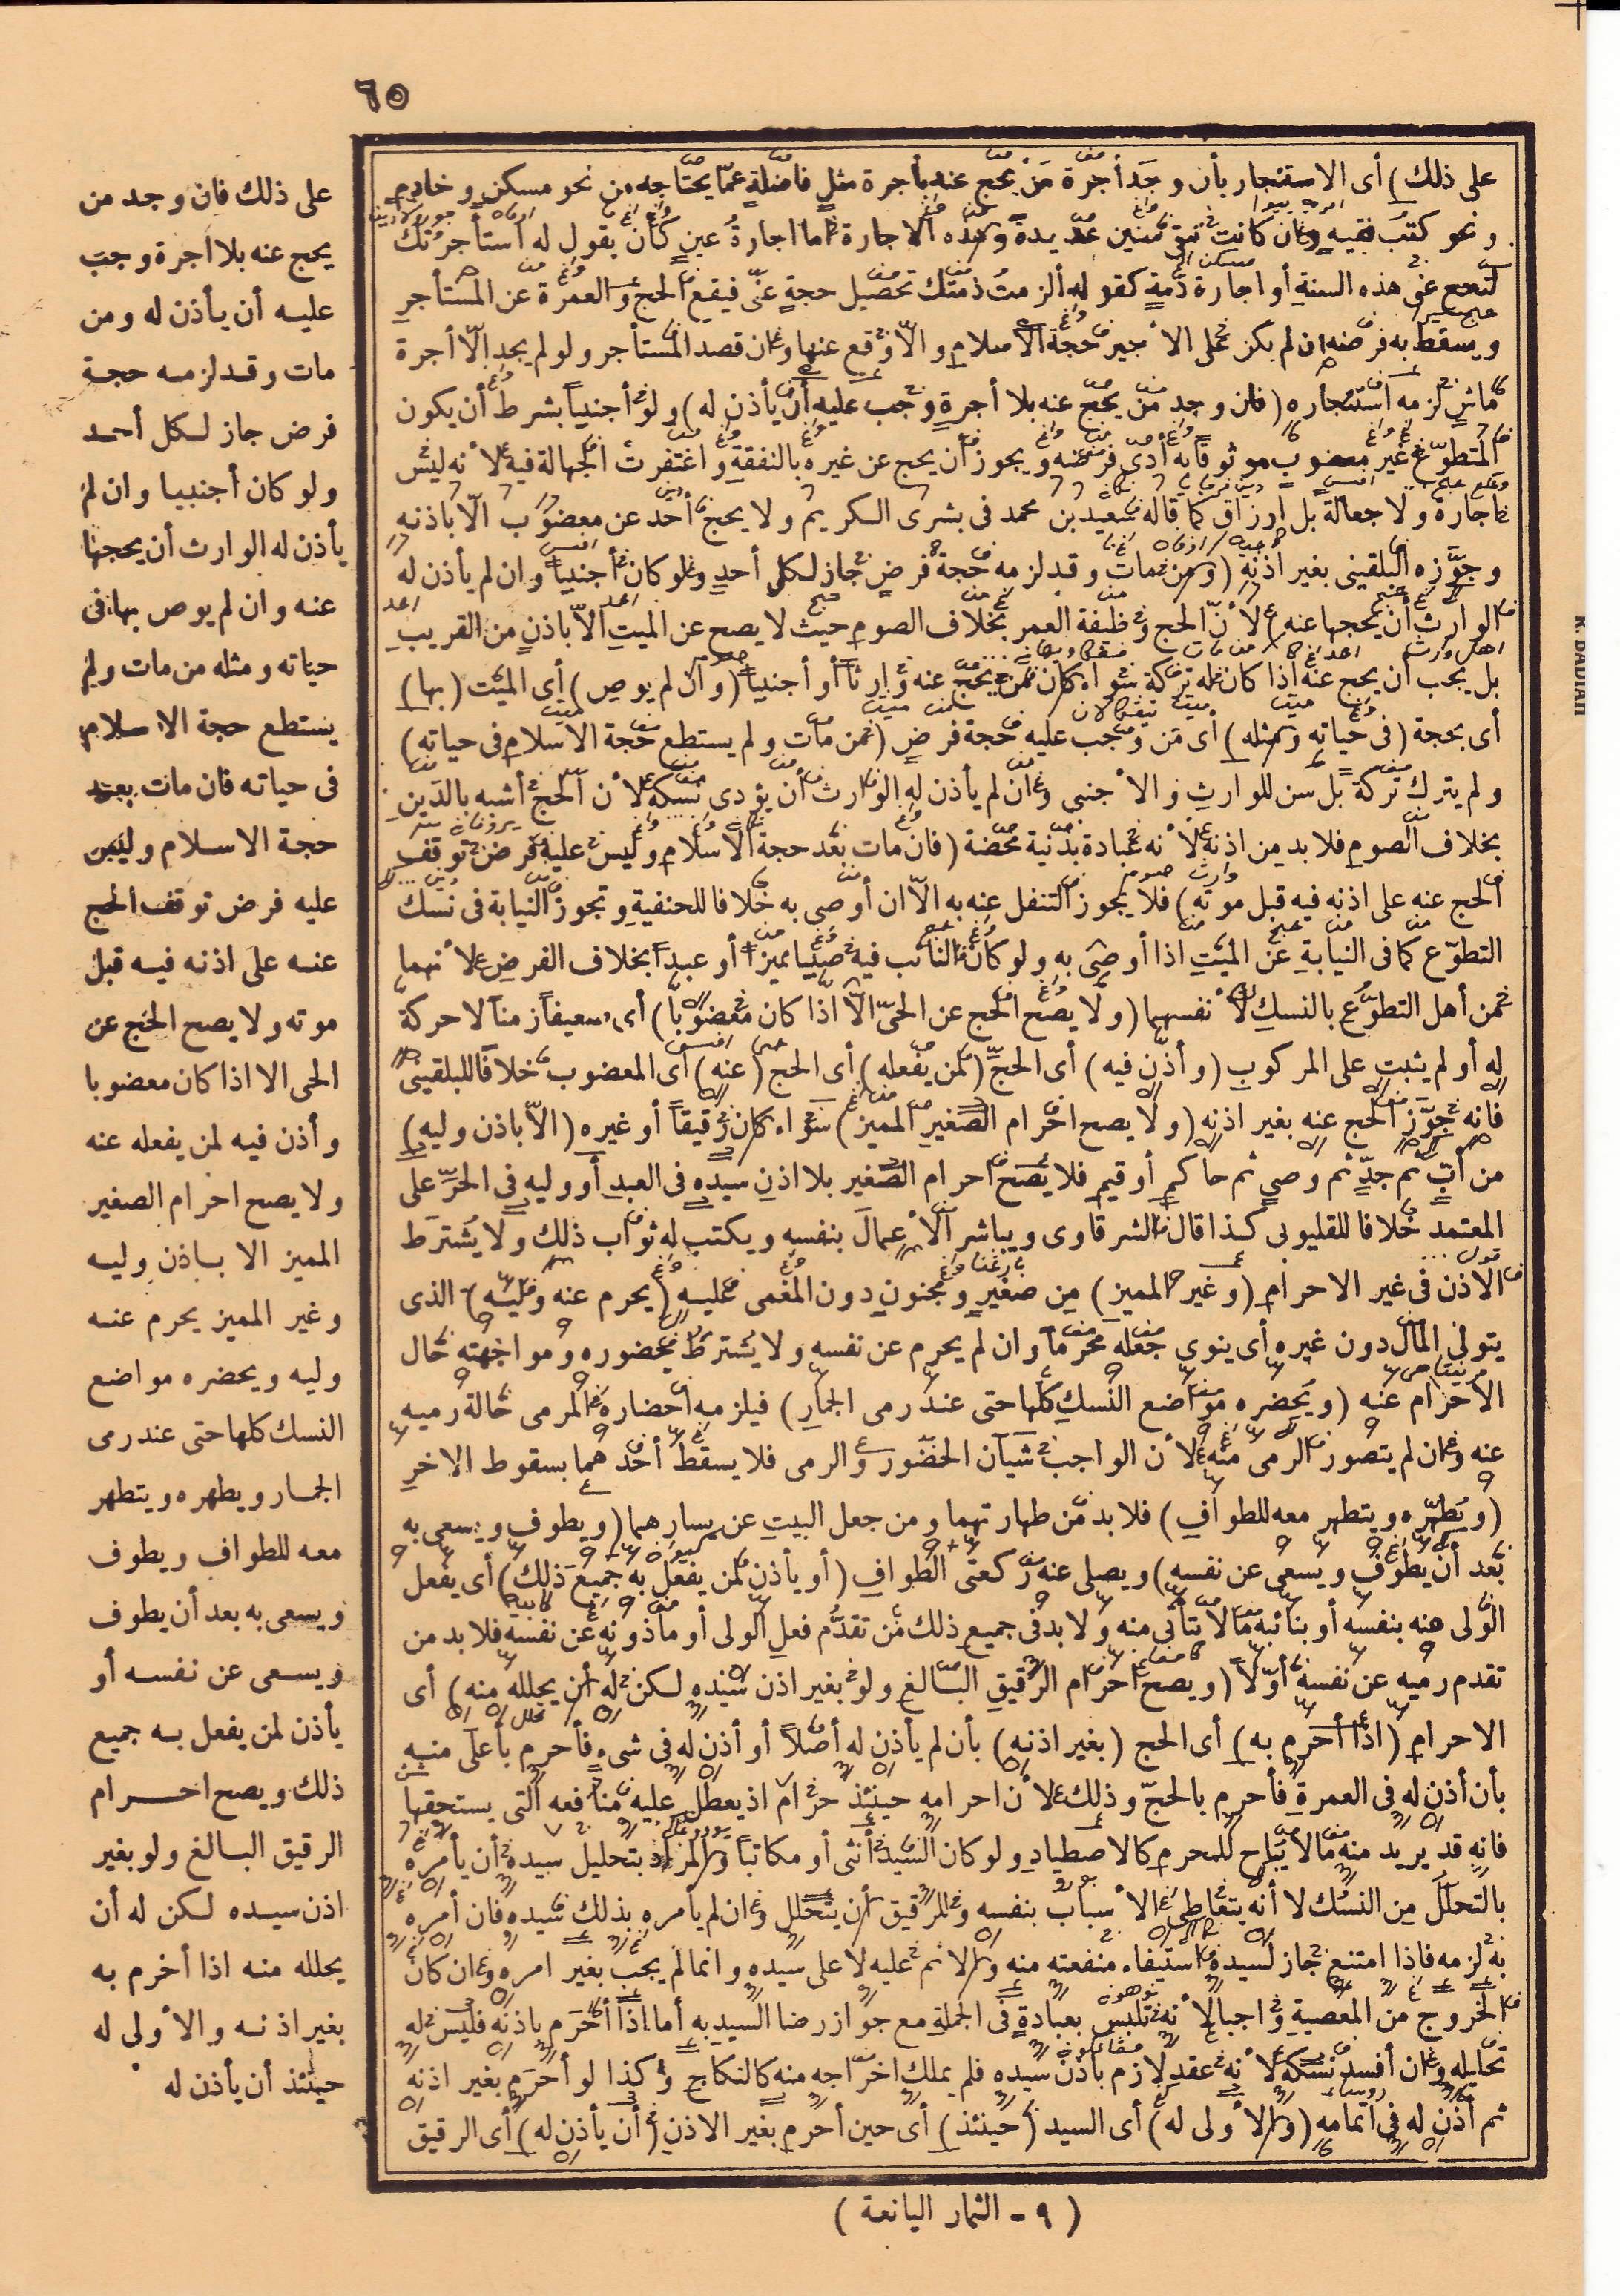 ٦٥
على ذلك) أى الاستئجار بأن وجد أجرة من يحج عنه بأجرة مثل فاضلة عما يحتاجه من نحو مسكن وخادم
ونحو كتب فقيه وان كانت تتقى سنين عديدة وهذه الاجارة اما اجارة عين كأن يقول له استأجرتك
لتحج عنى هذه السنة أو اجارة ذمة كقوله ألزمت ذمتك تحصيل حجة عنى فيقع الحج والعمرة عن المستأجر
ويسقط به فرضه ان لم يكن على الأجير حجة الاسلام والا وقع عنها وان قصد المستأجر ولو لم يجد الا أجرة
ماش لزمه استئجاره (فان وجد من يحج عنه بلا أجرة وجب عليه أن يأذن له) ولو أجنبيا بشرط أن يكون
المتطوع غير معضوب موثوقا به أدى فرضه ويجوز أن يحج عن غيره بالنفقة واغتفرت الجهالة فيه لأنه ليس
اجارة ولا جعالة بل ارزاق كما قاله سعيد بن محمد فى بشرى الكريم ولا يحج أحد عن معضوب الا باذنه
وجوزه البلقينى بغير اذنه (ومن مات وقد لزمه حجة فرض جاز لكل أحد ولو كان أجنبيا وان لم يأذن له
الوارث أن يحجها عنه) لأن الحج وظيفة العمر بخلاف الصوم حيث لا يصح عن الميت الا باذن من القريب
بل يجب أن يحج عنه اذا كان له تركة سواء كان من يحج عنه وارثا أو أجنبيا (وان لم يوص) أى الميت (بها)
أى بحجة (فى حياته ومثله) أى من وجب عليه حجة فرض (من مات ولم يستطع حجة الاسلام فى حياته)
ولم يترك تركة بل سن للوارث والأجنبى وان لم يأذن له الوارث أن يؤدى نسكه لأن الحج أشبه بالدين
بخلاف الصوم فلا بد من اذنه لأنه عبادة بدنية محضة (فان مات بعد حجة الاسلام وليس عليه فرض توقف
الحج عنه على اذنه فيه قبل موته) فلا يجوز التنفل عنه به الا ان أوصى به خلافا للحنفية وتجوز النيابة فى نسك
التطوع كما فى النيابة عن الميت اذا أوصى به ولو كان النائب فيه صبيا مميزا أو عبدا بخلاف الفرض لأنهما
من أهل التطوع بالنسك لأنفسهما (ولا يصح الحج عن الحى الا اذا كان معضوبا) أى ضعيفا زمنا لا حركة
له أو لم يثبت على المركوب (وأذن فيه) أى الحج (لمن يفعله) أى الحج (عنه) أى المعضوب خلافا للبلقينى
فانه جوز الحج عنه بغير اذنه (ولا يصح احرام الصغير المميز) سواء كان رقيقا أو غيره (الا باذن وليه)
من أب ثم جد ثم وصى ثم حاكم أو قيم فلا يصح احرام الصغير بلا اذن سيده فى العبد أو وليه فى الحر على
المعتمد خلافا للقليوبى كذا قال الشرقاوى ويباشر الأعمال بنفسه ويكتب له ثواب ذلك ولا يشترط
الاذن فى غير الاحرام (وغير المميز) من صغير ومجنون دون المغمى عليه (يحرم عنه وليه) الذى
يتولى المال دون غيره أى ينوى جعله محرما وان لم يحرم عن نفسه ولا يشترط حضوره ومواجهته حال
الاحرام عنه (ويحضره مواضع النسك كلها حتى عند رمى الجمار) فيلزمه احضاره المرمى حالة رميه
عنه وان لم يتصور الرمى منه لأن الواجب شيآن الحضور والرمى فلا يسقط أحدهما بسقوط الاخر
(ويطهره ويتطهر معه للطواف) فلا بد من طهارتهما ومن جعل البيت عن يسارهما (ويطوف ويسعى به
بعد أن يطوف ويسعى عن نفسه) ويصلى عنه ركعتى الطواف (أو يأذن لمن يفعل به جميع ذلك) أى يفعل
الولى عنه بنفسه أو بنائبه ما لا يتأتى منه ولا بد فى جميع ذلك من تقدم فعل الولى أو مأذونه عن نفسه فلا بد من
تقدم رميه عن نفسه أولا (ويصح احرام الرقيق البالغ ولو بغير اذن سيده لكن له أن يحلله منه) أى
الاحرام (اذا أحرم به) أى الحج (بغير اذنه) بأن لم يأذن له أصلا أو أذن له فى شىء فأحرم بأعلى منه
بأن أذن له فى العمرة فأحرم بالحج وذلك لأن احرامه حينئذ حرام اذ يعطل عليه منافعه التى يستحقها
فانه قد يريد منه ما لا يباح للمحرم كالاصطياد ولو كان السيد أنثى أو مكاتبا والمراد بتحليل سيده أن يأمره
بالتحلل من النسك لا أنه يتعاطى الأسباب بنفسه وللرقيق أن يتحلل وان لم يأمره بذلك سيده فان أمره
به لزمه فاذا امتنع جاز لسيده استيفاء منفعته منه والاثم عليه لا على سيده وانما لم يجب بغير امره وان كان
الخروج من المعصية واجبا لأنه تلبس بعبادة فى الجملة مع جواز رضا السيد به أما اذا أحرم باذنه فليس له
تحليله وان أفسد نسكه لأنه عقد لازم باذن سيده فلم يملك اخراجه منه كالنكاح وكذا لو أحرم بغير اذنه
ثم أذن له فى اتمامه (والأولى له) أى السيد (حينئذ) أى حين أحرم بغير الاذن (أن يأذن له) أى الرقيق
على ذلك فان وجد من
يحج عنه بلا أجرة وجب
عليه أن يأذن له ومن
مات وقد لزمه حجة
فرض جاز لكل أحد
ولو كان أجنبيا وان لم
يأذن له الوارث أن يحجها
عنه وان لم يوص بها فى
حياته ومثله من مات ولم
يستطع حجة الاسلام
فى حياته فان مات بعد
حجة الاسلام وليس
عليه فرض توقف الحج
عنه على اذنه فيه قبل
موته ولا يصح الحج عن
الحى الا اذا كان معضوبا
وأذن فيه لمن يفعله عنه
ولا يصح احرام الصغير
المميز الا باذن وليه
وغير المميز يحرم عنه
وليه ويحضره مواضع
النسك كلها حتى عند رمى
الجمار ويطهره ويتطهر
معه للطواف ويطوف
ويسعى به بعد أن يطوف
ويسعى عن نفسه أو
يأذن لمن يفعل به جميع
ذلك ويصح احرام
الرقيق البالغ ولو بغير
اذن سيده لكن له أن
يحلله منه اذا أحرم به
بغير اذنه والأولى له
حينئذ أن يأذن له
(٩ - الثمار اليانعة)